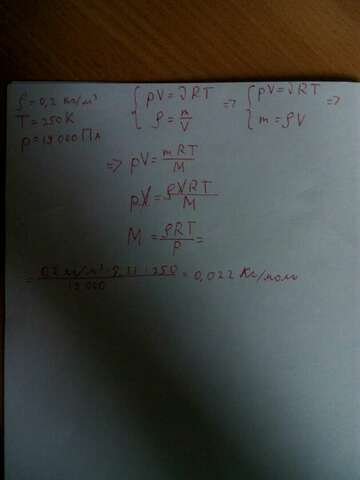 ρ = 0,2 кг/м³
T = 250K
p = 19000 Па
{ pV = νRT
ρ = m/V => { pV = νRT
m = ρV =>
=> pV = mRT/M
pV = ρVRT/M
M = ρRT/p =
= 0,2 кг/м³ · 8,31 · 250 / 19 000 = 0,022 Кг/моль